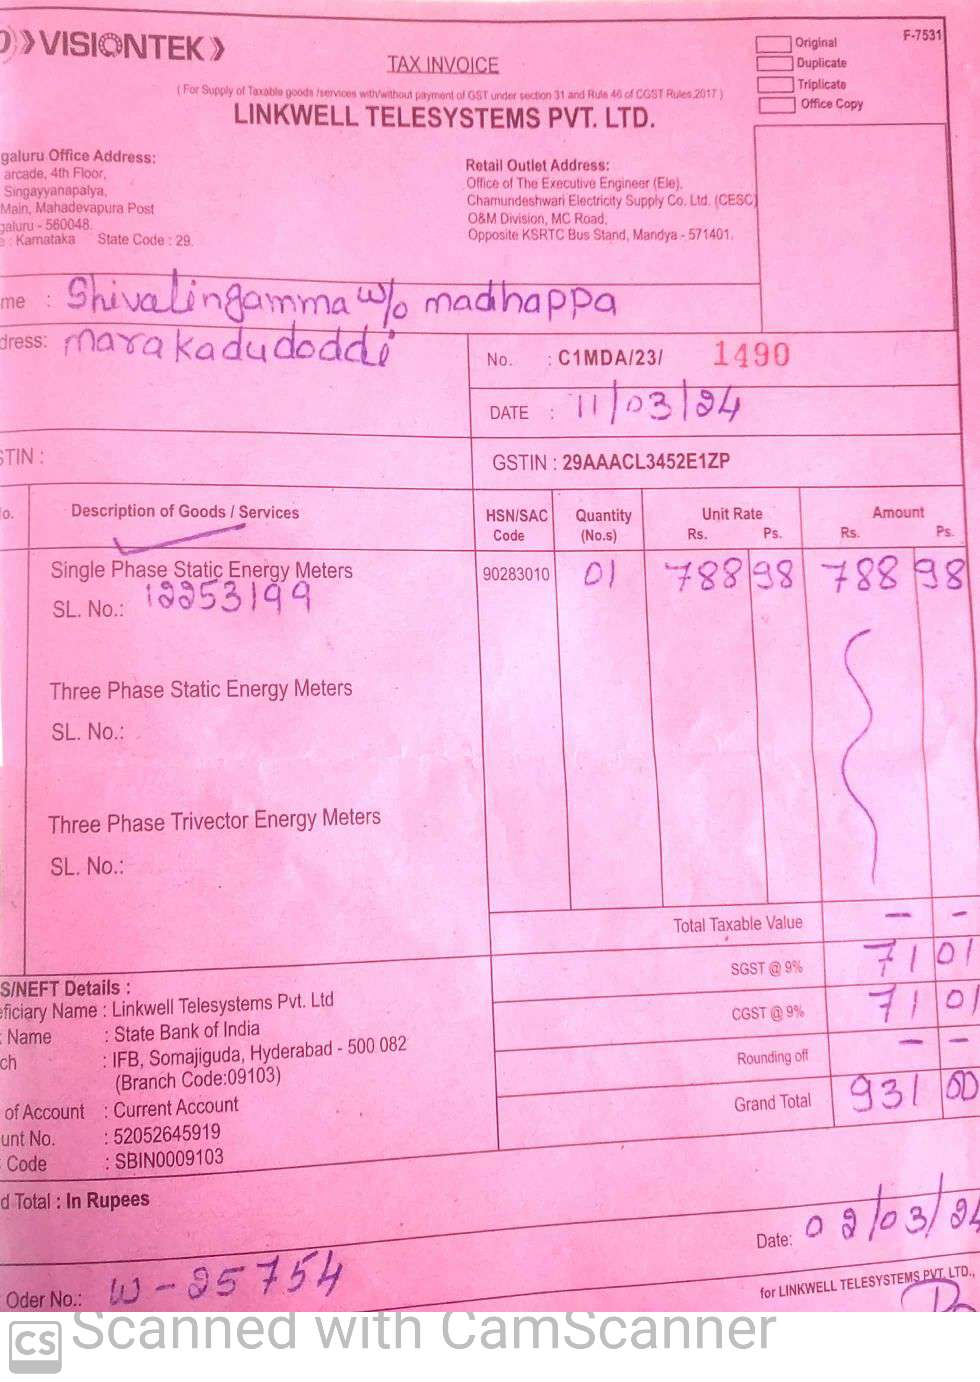 VISIONTEK
TAX INVOICE
( For Supply of Taxable goods /services with/without payment of GST under section 31 and Rule 46 of CGST Rules,2017 )
LINKWELL TELESYSTEMS PVT. LTD.
Original
Duplicate
Triplicate
Office Copy
F-7531
galuru Office Address:
arcade, 4th Floor,
Singayyanapalya,
Main, Mahadevapura Post
galuru - 560048.
e : Karnataka State Code : 29.
Retail Outlet Address:
Office of The Executive Engineer (Ele),
Chamundeshwari Electricity Supply Co. Ltd. (CESC)
O&M Division, MC Road,
Opposite KSRTC Bus Stand, Mandya - 571401.
me : Shivalingamma w/o madhappa
dress: marakadudoddi
No. : C1MDA/23/ 1490
DATE : 11/03/24
STIN :
GSTIN : 29AAACL3452E1ZP
o. Description of Goods / Services HSN/SAC Code Quantity (No.s) Unit Rate Rs. Ps. Amount Rs. Ps.
Single Phase Static Energy Meters 90283010 01 788 98 788 98
SL. No.: 12253199
Three Phase Static Energy Meters
SL. No.:
Three Phase Trivector Energy Meters
SL. No.:
Total Taxable Value — -
SGST @ 9% 71 01
CGST @ 9% 71 01
Rounding off — -
Grand Total 931 00
S/NEFT Details :
eficiary Name : Linkwell Telesystems Pvt. Ltd
Name : State Bank of India
ch : IFB, Somajiguda, Hyderabad - 500 082
(Branch Code:09103)
of Account : Current Account
unt No. : 52052645919
Code : SBIN0009103
d Total : In Rupees
Date: 02/03/24
Oder No.: W-25754
for LINKWELL TELESYSTEMS PVT. LTD.,
CS Scanned with CamScanner